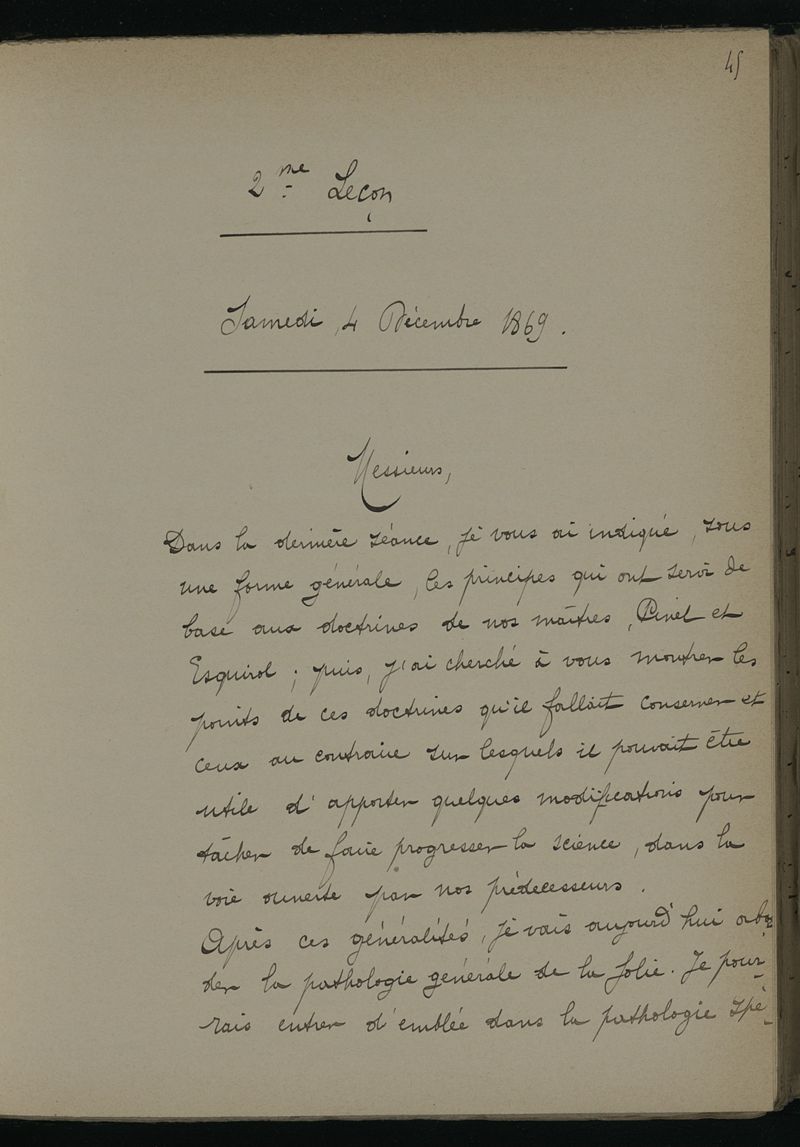 45
2me Leçon
Samedi, 4 Décembre 1869.
Messieurs,
Dans la dernière séance, je vous ai indiqué, sous
une forme générale, les principes qui ont servi de
base aux doctrines de nos maîtres, Pinel et
Esquirol ; puis, j'ai cherché à vous montrer les
points de ces doctrines qu'il fallait conserver et
ceux au contraire sur lesquels il pouvait être
utile d'apporter quelques modifications pour
tâcher de faire progresser la science, dans la
voie ouverte par nos prédecesseurs.
Après ces généralités, je vais aujourd'hui abor-
der la pathologie générale de la folie. Je pour-
rais entrer d'emblée dans la pathologie spé-